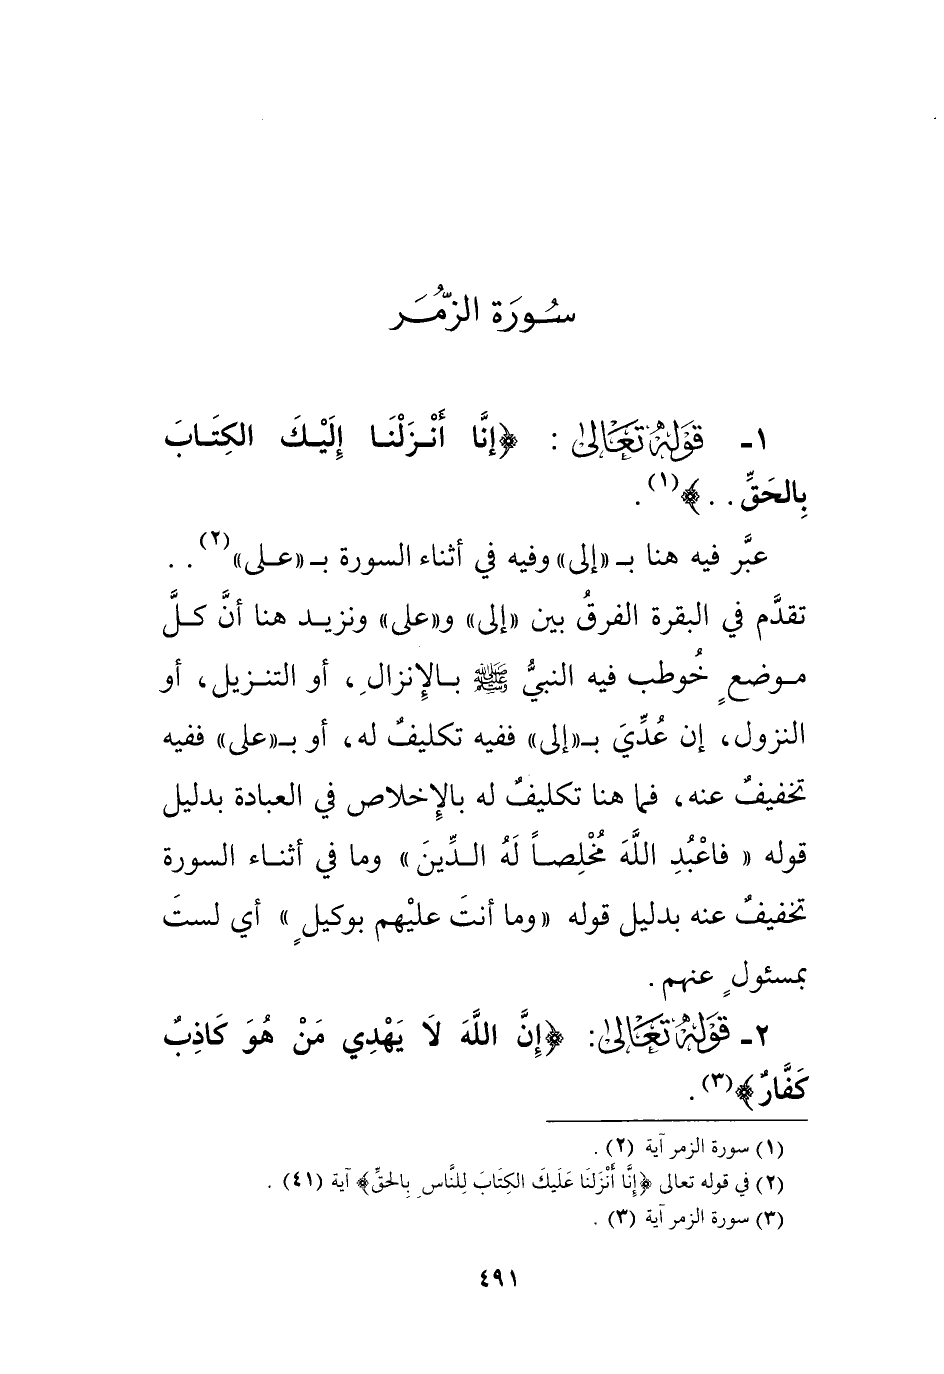 سُورَة الزُّمَر
١ـ قَوْلُهُ تَعَالَىٰ : ﴿إِنَّا أَنْـزَلْنَـا إِلَيْـكَ الكِتَـابَ
بِالحَقِّ . . ﴾(١) .
عبَّر فيه هنا بـ «إلى» وفيه في أثناء السورة بـ «عـلى»(٢) . .
تقدَّم في البقرة الفرقُ بين «إلى» و«على» ونزيـد هنا أنَّ كـلَّ
مـوضعٍ خُوطب فيه النبيُّ ﷺ بـالإِنزالِ، أو التنـزيل، أو
النزول، إن عُدِّيَ بـ«إلى» ففيه تكليفٌ له، أو بـ«على» ففيه
تخفيفٌ عنه، فما هنا تكليفٌ له بالإِخلاص في العبادة بدليل
قوله « فاعْبُدِ اللَّهَ مُخْلِصـاً لَهُ الـدِّينَ» وما في أثنـاء السورة
تخفيفٌ عنه بدليل قوله «وما أنتَ عليْهم بوكيلٍ» أي لستَ
بمسئولٍ عنهم .
٢ـ قَوْلُهُ تَعَالَىٰ: ﴿إِنَّ اللَّهَ لَا يَهْدِي مَنْ هُوَ كَاذِبٌ
كَفَّارٌ﴾(٣) .
(١) سورة الزمر آية (٢) .
(٢) في قوله تعالى ﴿إِنَّا أَنْزَلنَا عَلَيكَ الكِتَابَ لِلنَّاسِ بِالحَقِّ﴾ آية (٤١) .
(٣) سورة الزمر آية (٣) .
٤٩١